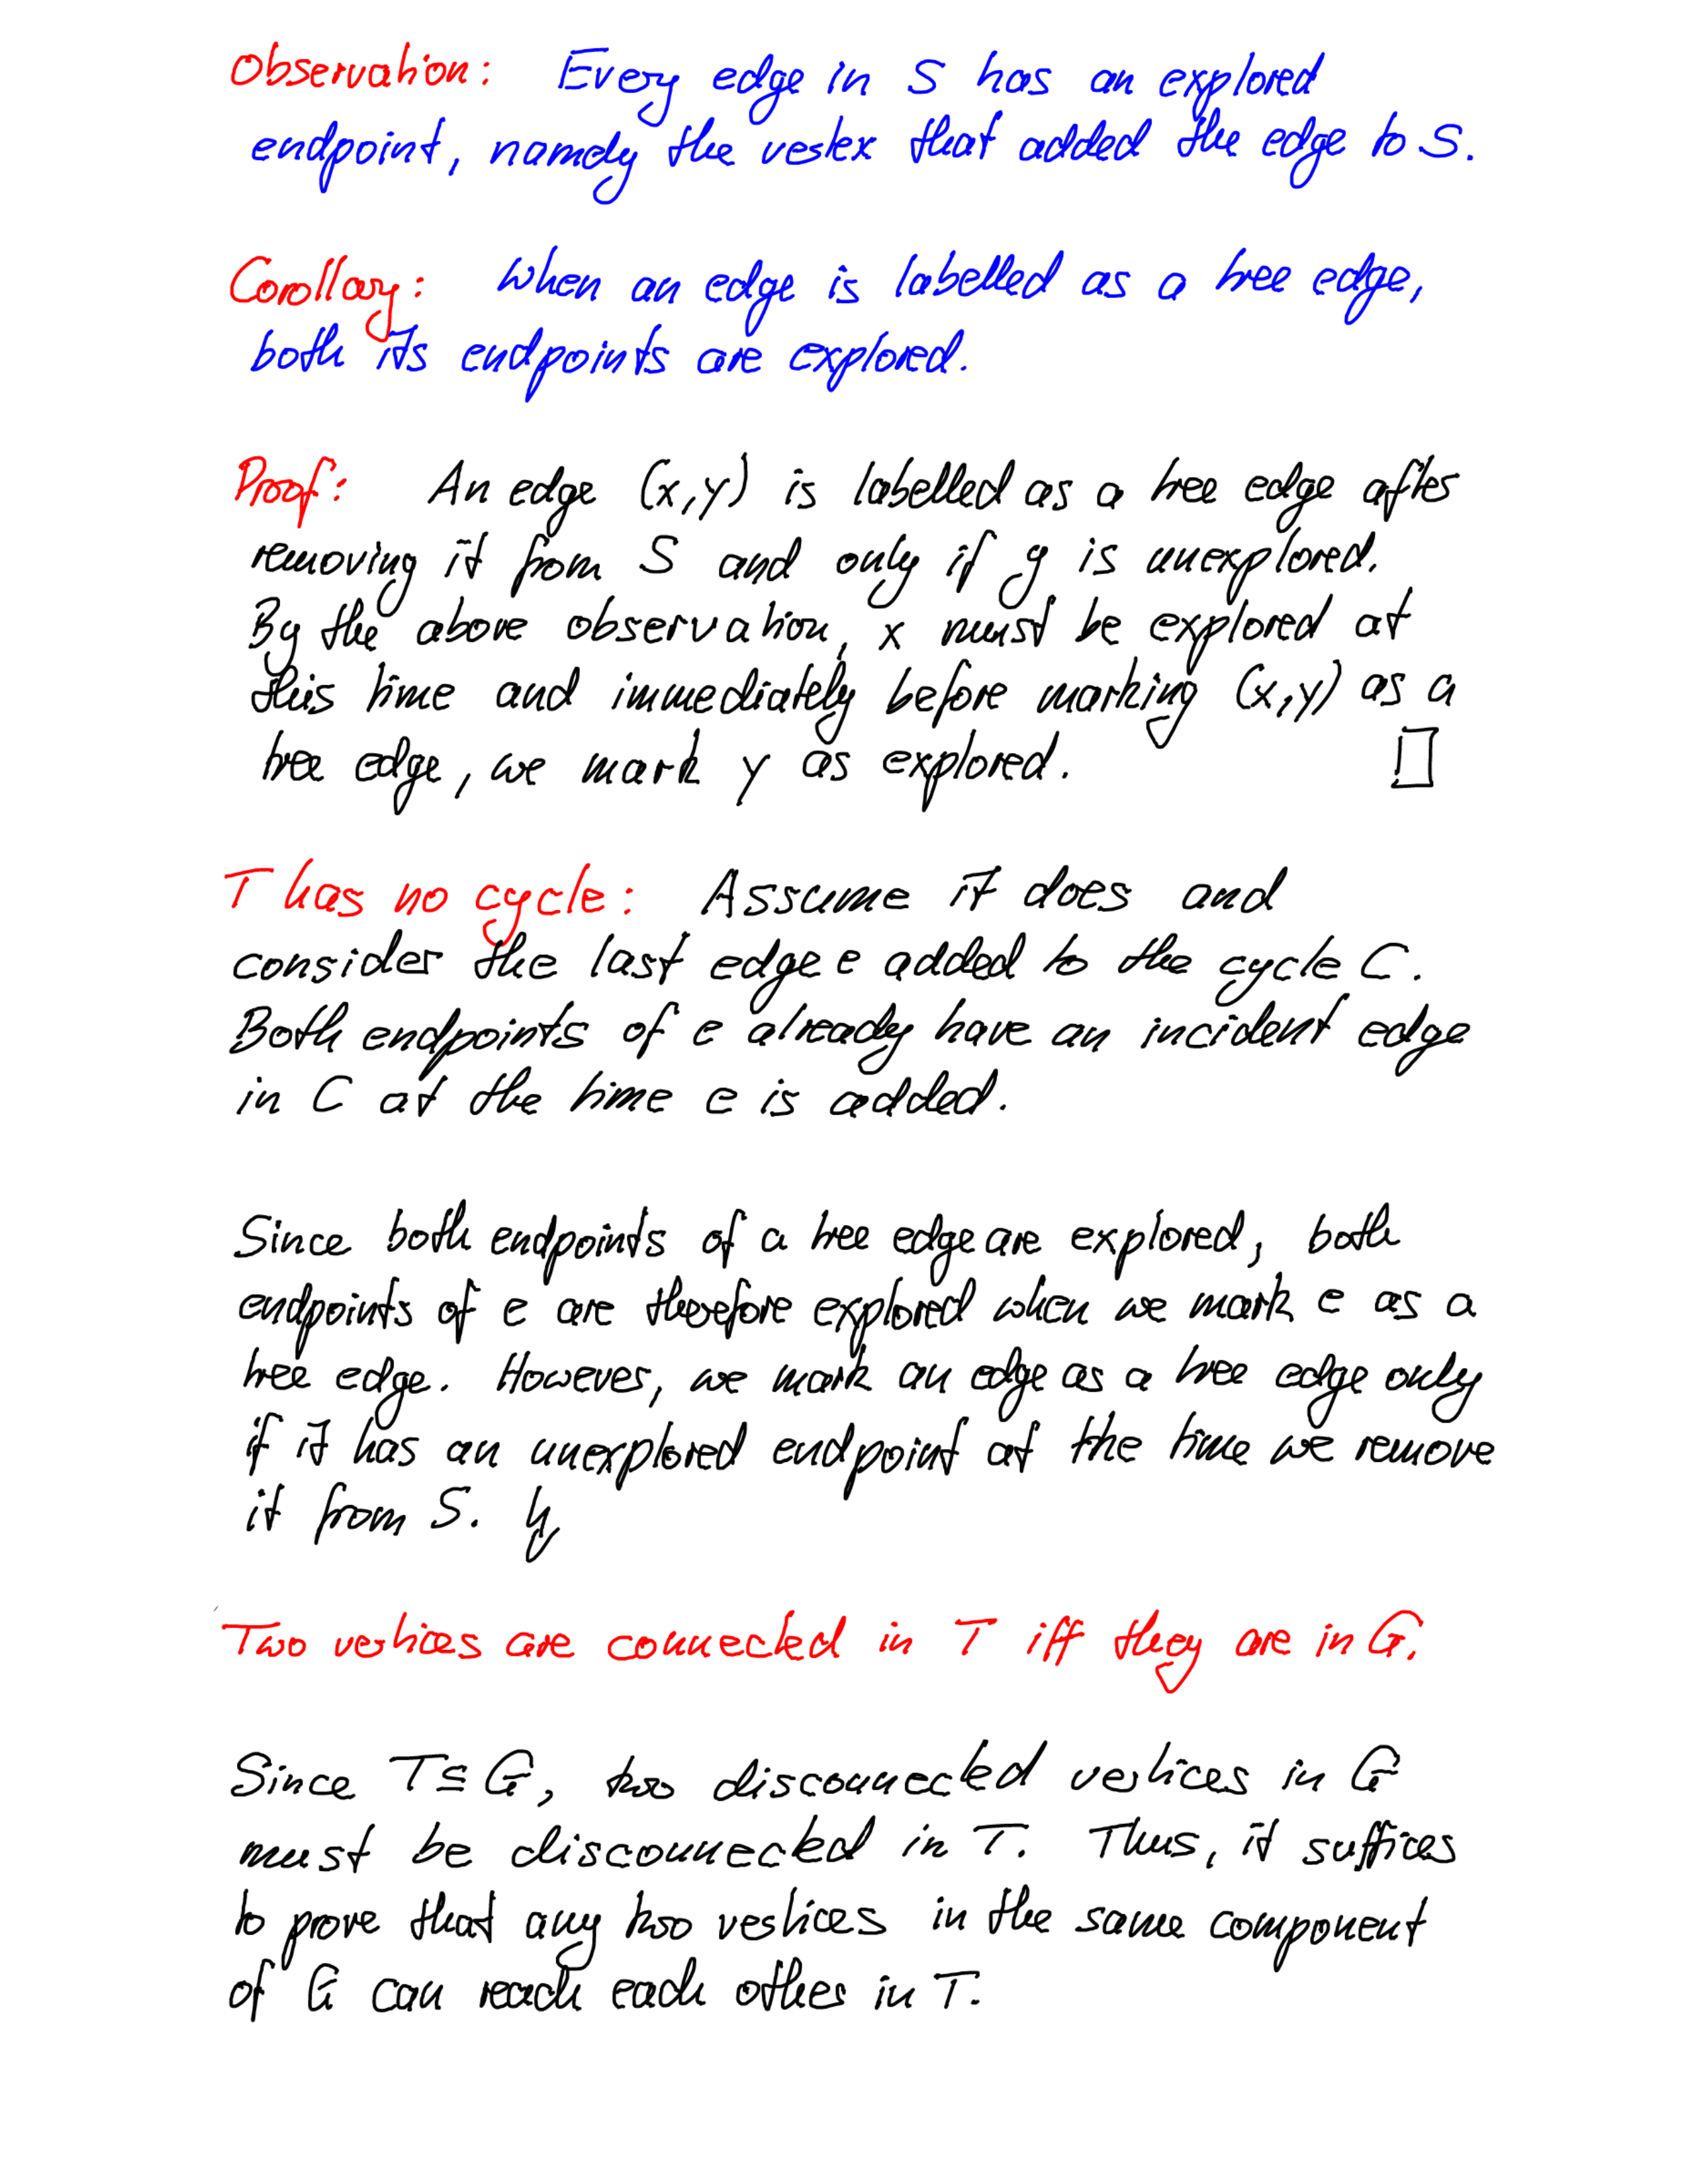 Observation: Every edge in S has an explored
endpoint, namely the vertex that added the edge to S.
Corollary: When an edge is labelled as a tree edge,
both its endpoints are explored.
Proof: An edge (x,y) is labelled as a tree edge after
removing it from S and only if y is unexplored.
By the above observation, x must be explored at
this time and immediately before marking (x,y) as a
tree edge, we mark y as explored. □
T has no cycle: Assume it does and
consider the last edge e added to the cycle C.
Both endpoints of e already have an incident edge
in C at the time e is added.
Since both endpoints of a tree edge are explored, both
endpoints of e are therefore explored when we mark e as a
tree edge. However, we mark an edge as a tree edge only
if it has an unexplored endpoint at the time we remove
it from S. ↯
Two vertices are connected in T iff they are in G.
Since T ⊆ G, two disconnected vertices in G
must be disconnected in T. Thus, it suffices
to prove that any two vertices in the same component
of G can reach each other in T.